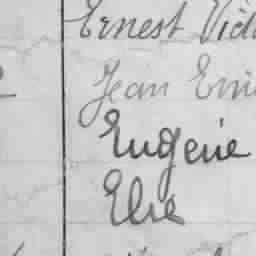 Ernest Vict
Jean Emi
Eugénie
Elie